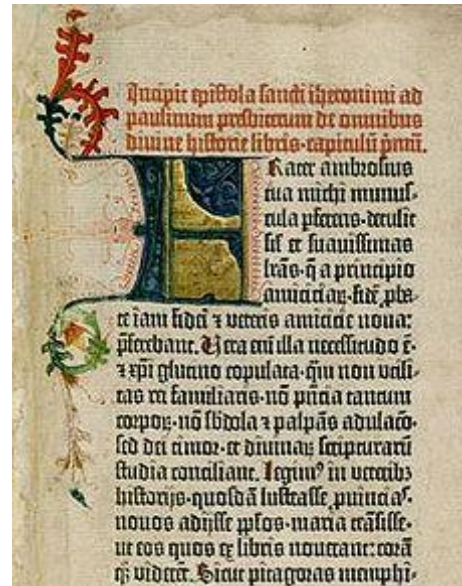 Incipit epistola sancti iheronimi ad
paulinum presbiterum de omnibus
divine historie libris·capitulū pmū.
Frater ambrosius
tua michi munus-
cula pferens·detulit
sil et suavissimas
lrās·q̄ a principio
amiciciaꝝ·fidē pba-
te iam fidei ⁊ veteris amicicie nova:
pferebant. Vera enī illa necessitudo ē·
⁊ xpi glutino copulata·qm̄ non utili-
tas rei familiaris·nō pn̄cia tantum
corpoꝝ·nō sbdola ⁊ palpās adulacō·
sed dei timor·et divinaꝝ scripturarū
studia conciliant. Legimꝰ in veteribꝫ
historijs·quosdā lustrasse ꝓvincias·
novos adijsse pplos·maria trāsisse·
ut eos quos ex libris noverant: corā
qꝫ viderēt. Sicut pitagoras memphi-